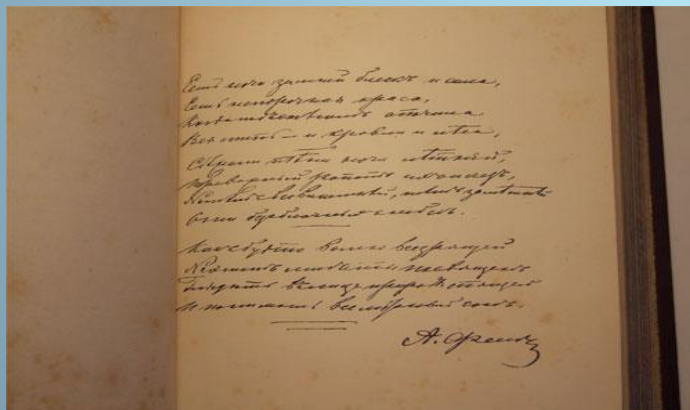 Есть ночи зимней блескъ и сила,
Есть непорочная краса,
Когда подъ снѣгомъ опочила
Вся степь – и кровли и лѣса,
Сбѣжали тѣни ночи лѣтней,
Тревожный ропотъ ихъ исчезъ,
Но тѣмъ всевластнѣй, тѣмъ замѣтнѣй
Огни безоблачныхъ небесъ.
Какъ будто волею всезрящей
На этотъ мигъ ты посвященъ
Глядѣть въ лицо природы спящей
И понимать всемірный сонъ.
А. Фетъ